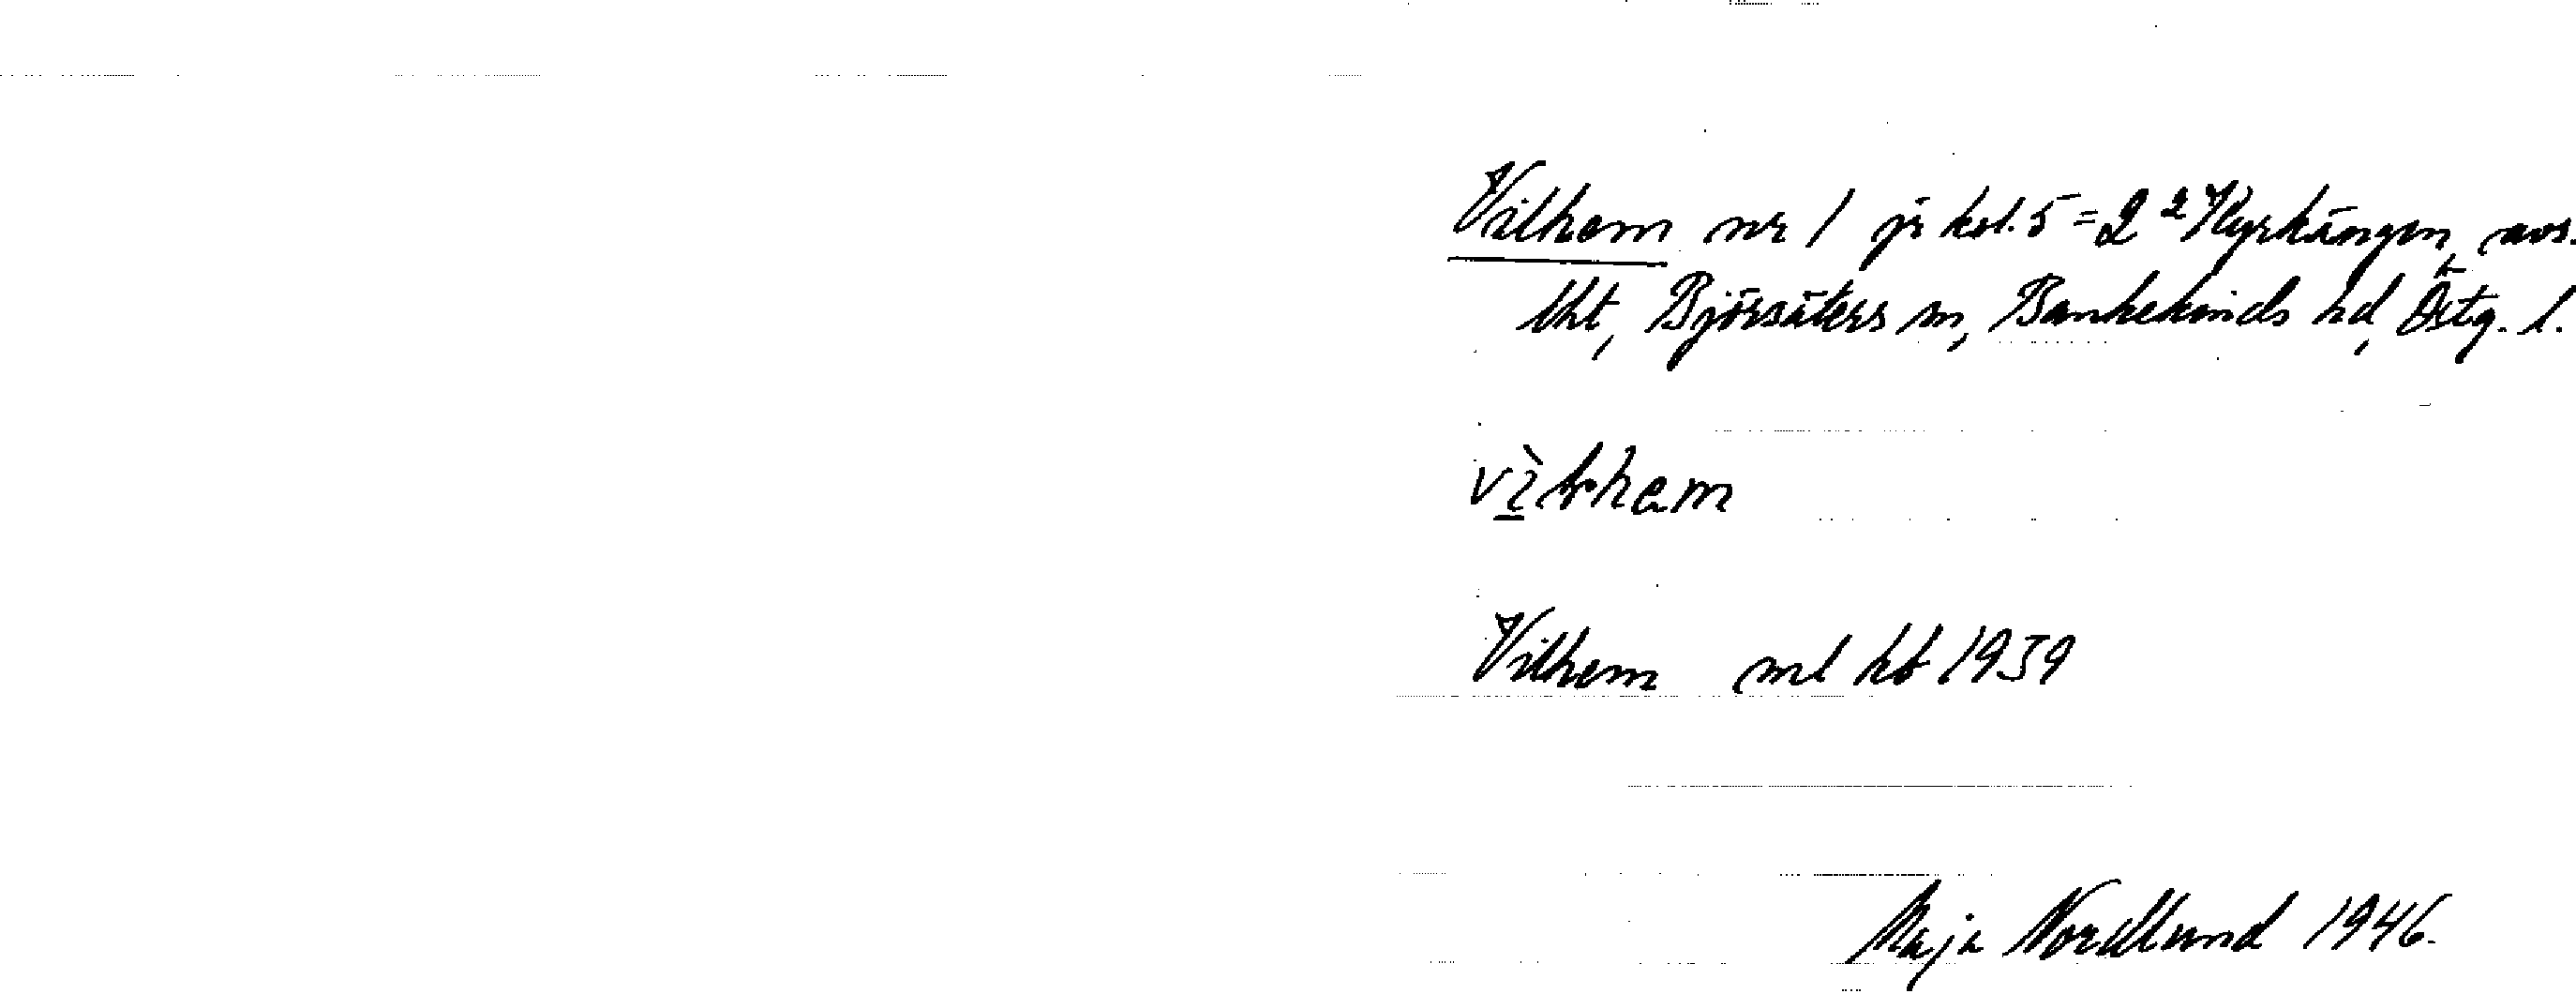 Vilhem nr 1 jr kol. 5 = 2² Kyrkängen, avs.
lht, Björsäters sn, Bankekinds hd, Östg. l.
vìlhem
Vilhem ml kb 1939
Maja Nordlund 1946.